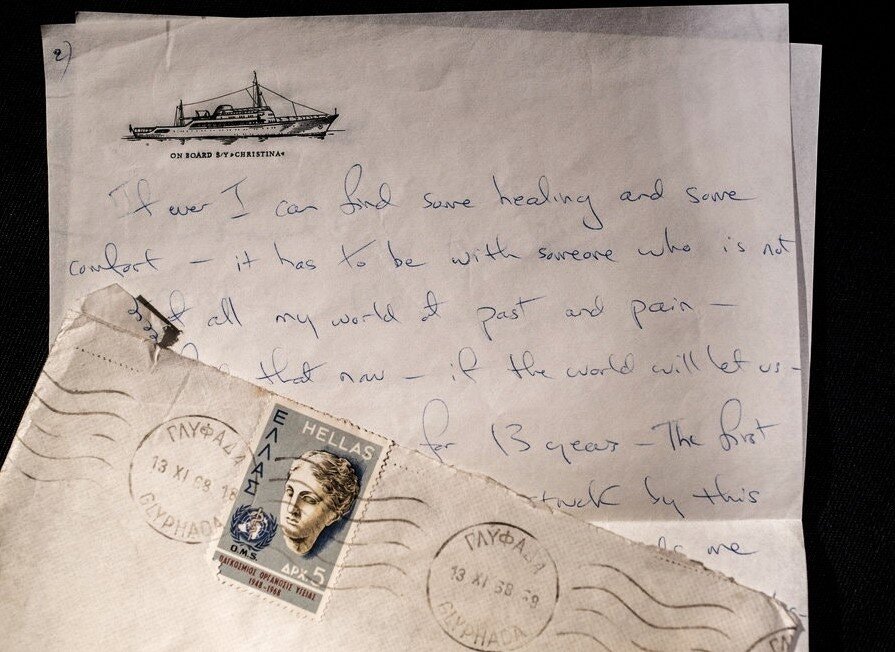 2)
ON BOARD S/Y "CHRISTINA"
If ever I can find some healing and some
comfort – it has to be with someone who is not
all my world of past and pain –
that now – if the world will let us –
for 13 years – The first
struck by this
me
ΓΛΥΦΑΔΑ
13 XI 68 18
GLYPHADA
ΕΛΛΑΣ
HELLAS
O.M.S.
ΔΡΧ. 5
ΠΑΓΚΟΣΜΙΟΣ ΟΡΓΑΝΩΣΙΣ ΥΓΕΙΑΣ
1948-1968
ΓΛΥΦΑΔΑ
13 XI 68
GLYPHADA